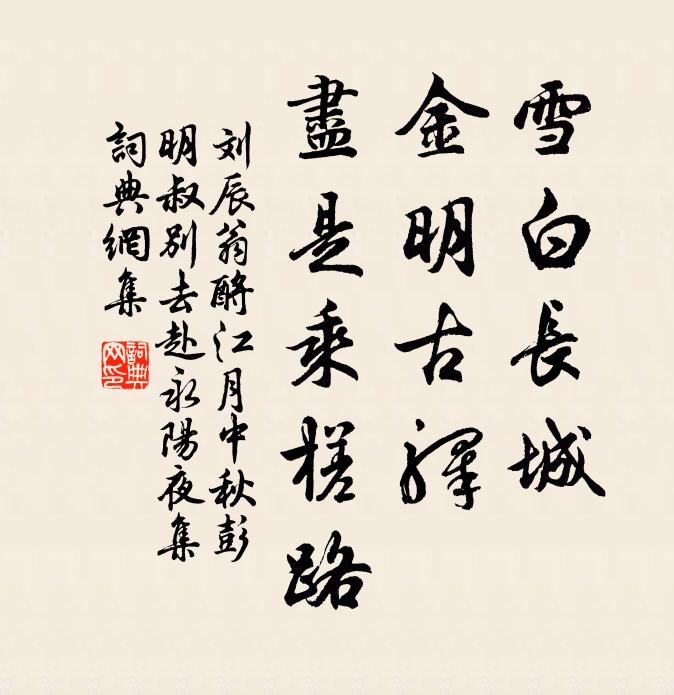 雪白長城
金明古驛
盡是乘槎路
刘辰翁酹江月中秋彭
明叔别去赴永陽夜集
詞典網集
詞典網印